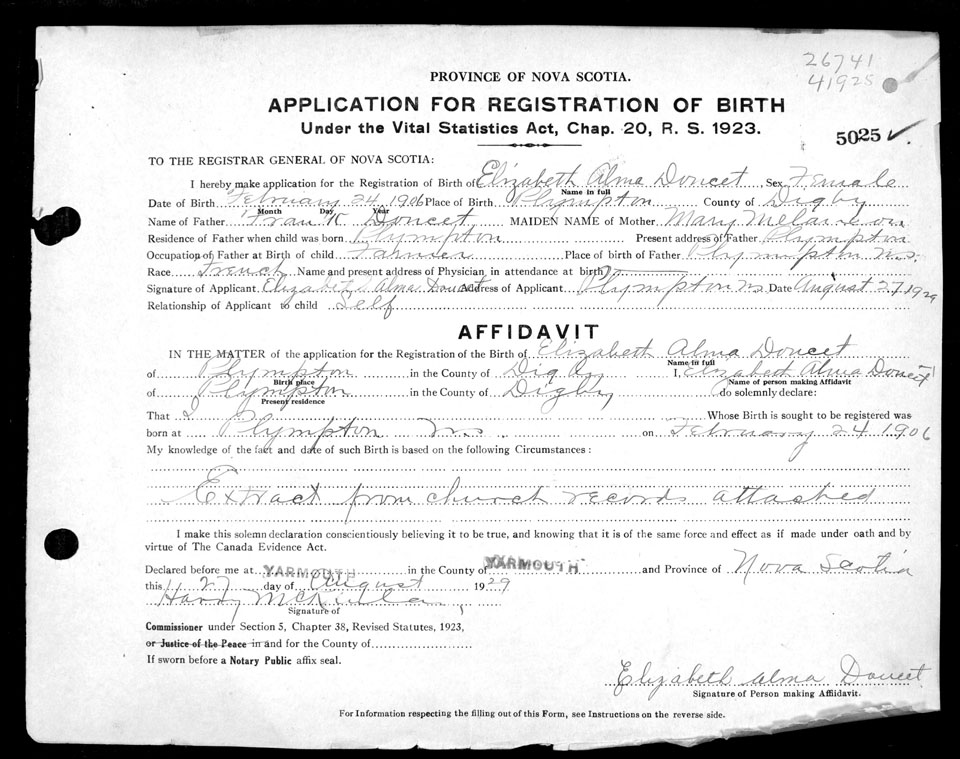 26741
41925
PROVINCE OF NOVA SCOTIA.
APPLICATION FOR REGISTRATION OF BIRTH
Under the Vital Statistics Act, Chap. 20, R. S. 1923.
5025 ✓
TO THE REGISTRAR GENERAL OF NOVA SCOTIA:
I hereby make application for the Registration of Birth of Elizabeth Alma Doucet Sex Female
Name in full
Date of Birth February 24 1906 Place of Birth Plympton County of Digby
Month Day Year
Name of Father Frank Doucet MAIDEN NAME of Mother Mary Melanson
Residence of Father when child was born Plympton Present address of Father Plympton
Occupation of Father at Birth of child Farmer Place of birth of Father Plympton N.S.
Race French Name and present address of Physician in attendance at birth
Signature of Applicant Elizabeth Alma Doucet Address of Applicant Plympton N.S. Date August 27 1929
Relationship of Applicant to child Self
AFFIDAVIT
IN THE MATTER of the application for the Registration of the Birth of Elizabeth Alma Doucet
Name in full
of Plympton in the County of Digby I, Elizabeth Alma Doucet
Birth place Name of person making Affidavit
of Plympton in the County of Digby do solemnly declare:
Present residence
That I Whose Birth is sought to be registered was
born at Plympton N.S. on February 24 1906
My knowledge of the fact and date of such Birth is based on the following Circumstances:
Extract from church records attached
I make this solemn declaration conscientiously believing it to be true, and knowing that it is of the same force and effect as if made under oath and by
virtue of The Canada Evidence Act.
Declared before me at YARMOUTH in the County of YARMOUTH and Province of Nova Scotia
this 27 day of August 1929
Signature of
Commissioner under Section 5, Chapter 38, Revised Statutes, 1923,
or Justice of the Peace in and for the County of
If sworn before a Notary Public affix seal.
Elizabeth Alma Doucet
Signature of Person making Affidavit.
For Information respecting the filling out of this Form, see Instructions on the reverse side.